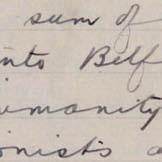 sum of
into Belf
umanity
onists a